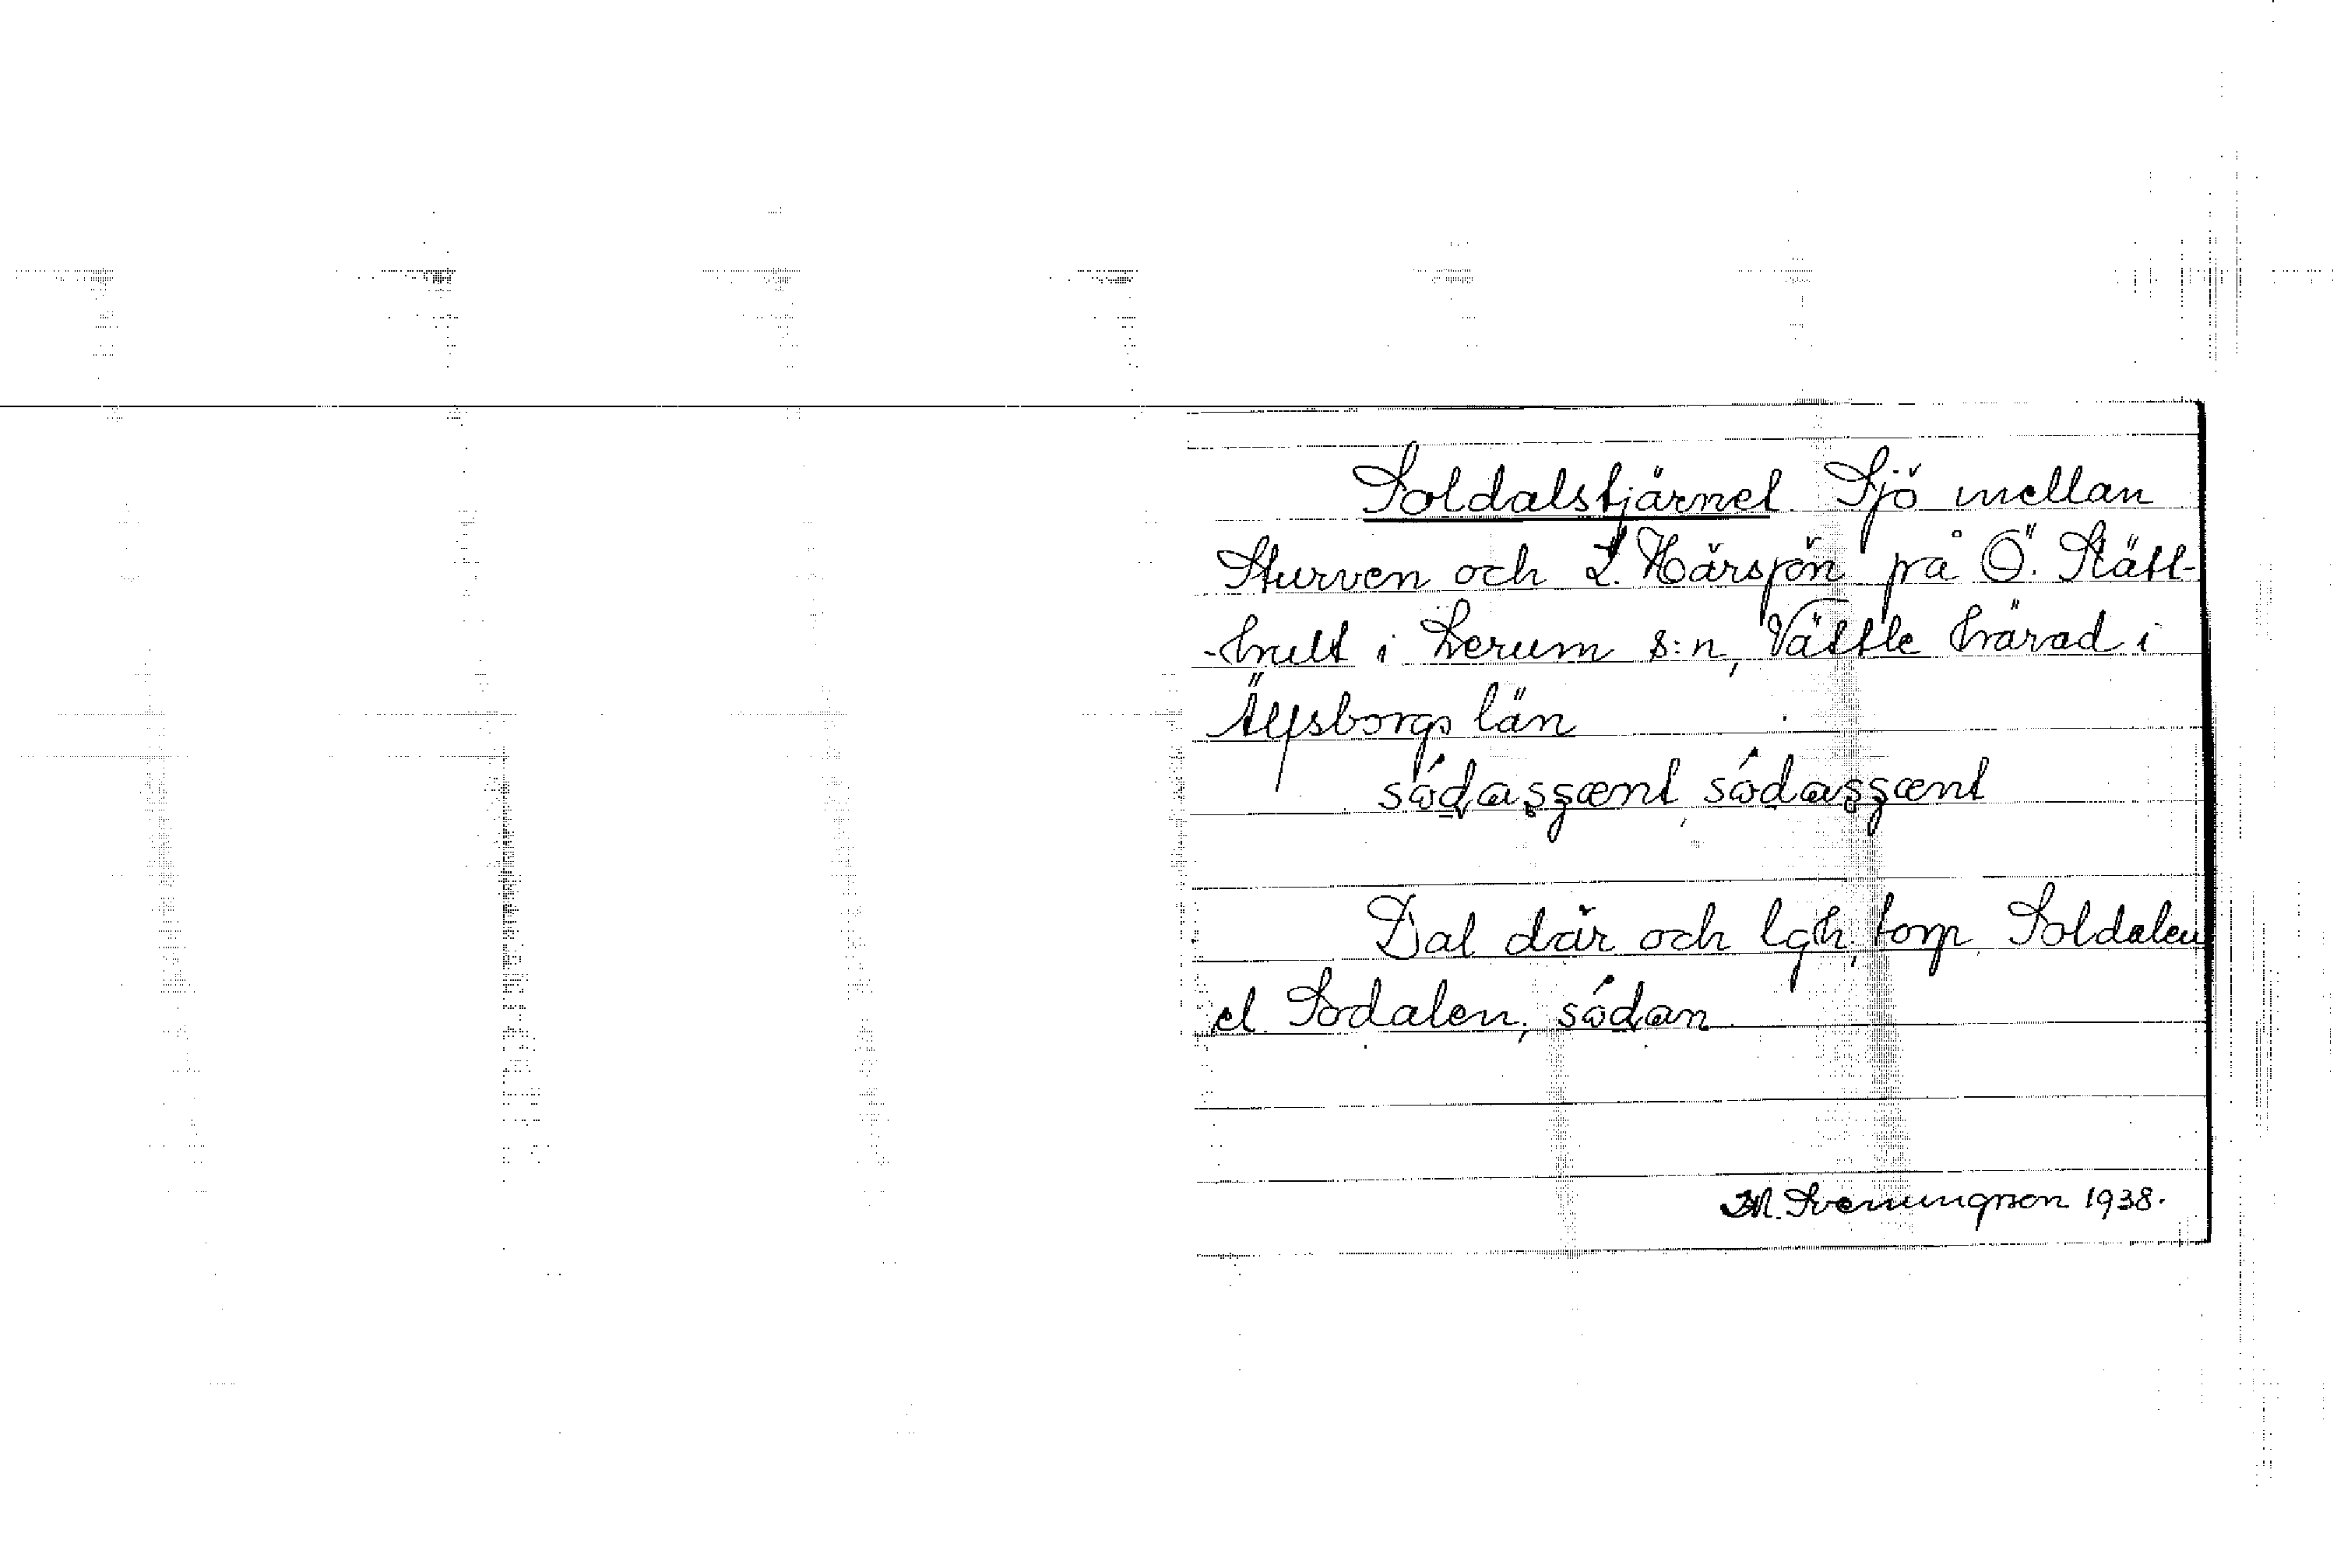 Soldalstjärnet. Sjö mellan
Sturven och L. Härsjön på Ö. Stätt-
-hult i Lerum s:n, Vättle härad i
Älfsborgs län
Dal där och lgh, torp Soldalen
el. Sodalen, sódan
M. Svenungson 1938.